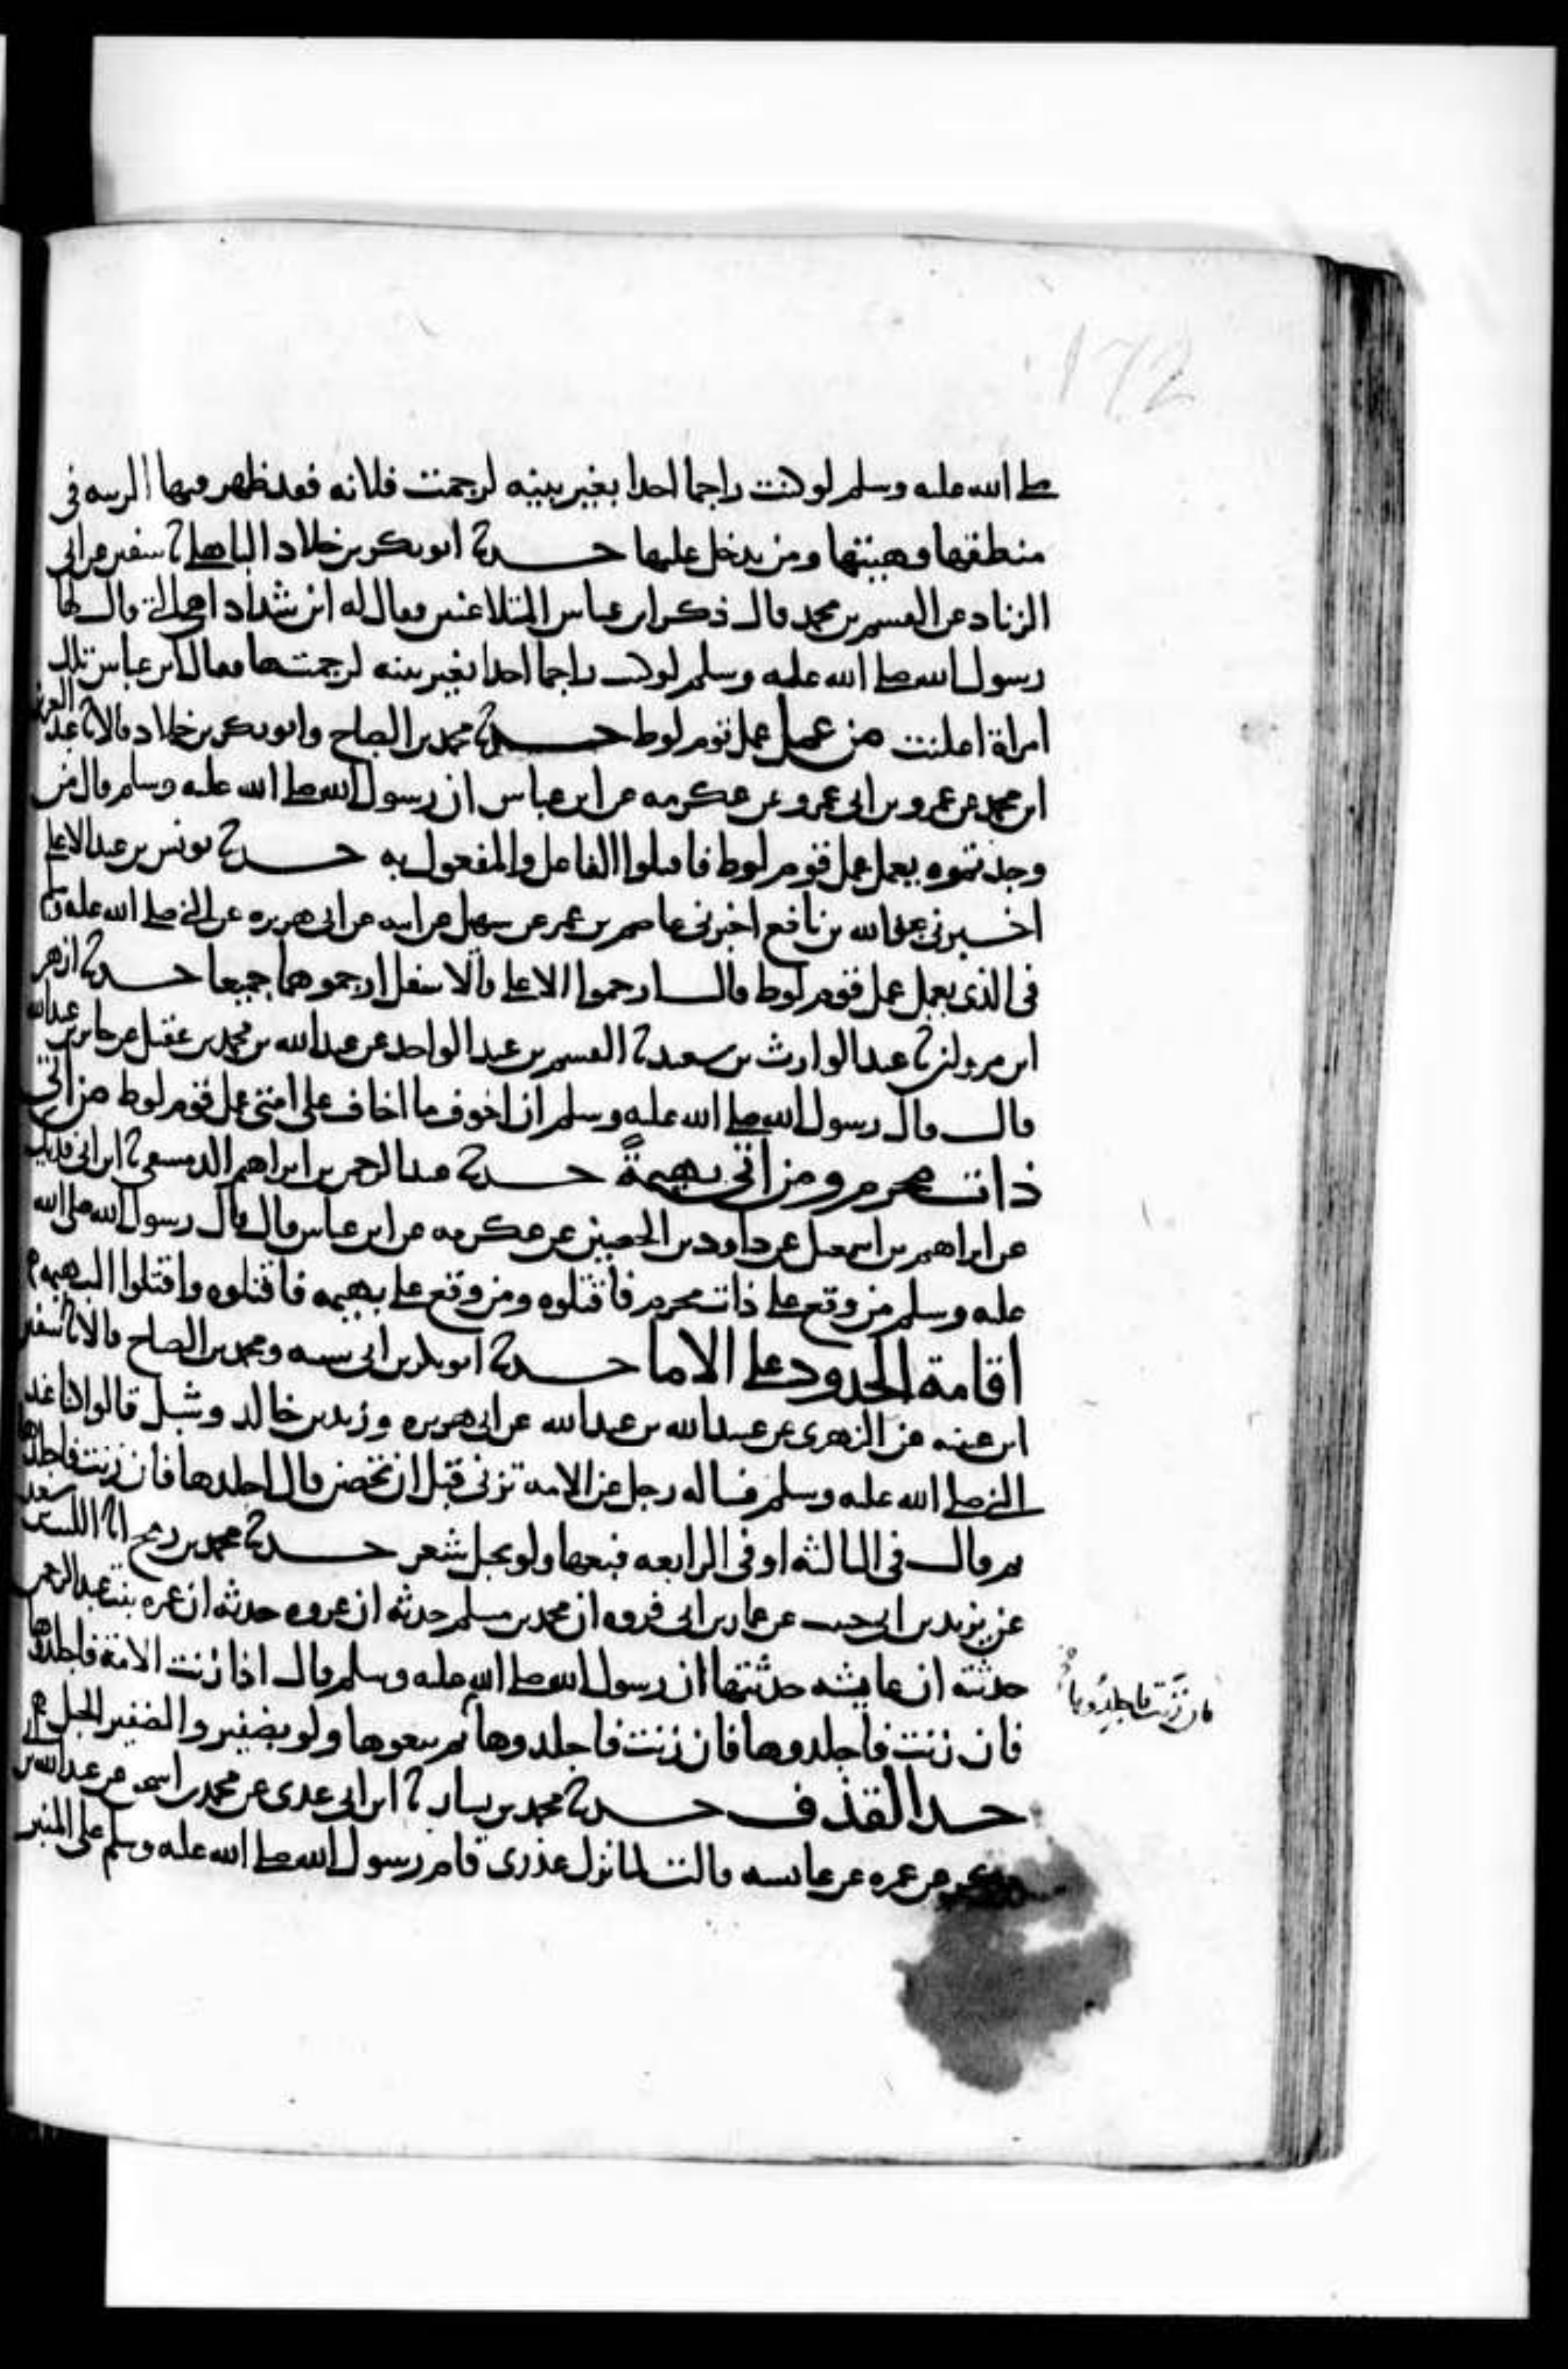 172
صلى الله عليه وسلم لو كنت راجما احدا بغير بينه لرجمت فلانه فقد ظهر فيها الريبه في
منطقها وهيئتها ومن يدخل عليها حدثنا ابو بكر بن خلاد الباهلي ثنا سفين عن ابي
الزناد عن القسم بن محمد قال ذكر ابن عباس المتلاعنين فقال له ابن شداد اهي التي قال لها
رسول الله صلى الله عليه وسلم لو كنت راجما احدا بغير بينه لرجمتها فقال ابن عباس تلك
امراة اعلنت من عمل عمل قوم لوط حدثنا محمد بن الصباح وابو بكر بن خلاد قالا ثنا عبد العزيز
ابن محمد عن عمرو بن ابي عمرو عن عكرمه عن ابن عباس ان رسول الله صلى الله عليه وسلم قال من
وجدتموه يعمل عمل قوم لوط فاقتلوا الفاعل والمفعول به حدثنا يونس بن عبد الاعلى
اخبرني عبد الله بن نافع اخبرني عاصم بن عمر عن سهيل عن ابيه عن ابي هريره عن النبي صلى الله عليه وسلم
في الذي يعمل عمل قوم لوط قال ارجموا الاعلى والاسفل ارجموهما جميعا حدثنا ازهر
ابن مروان ثنا عبد الوارث بن سعيد ثنا القسم بن عبد الواحد عن عبد الله بن محمد بن عقيل عن جابر بن عبد الله
قال قال رسول الله صلى الله عليه وسلم ان اخوف ما اخاف على امتي عمل قوم لوط من اتى
ذات محرم ومن اتى بهيمة حدثنا عبد الرحمن بن ابراهيم الدمشقي ثنا ابن ابي فديك
عن ابراهيم بن اسمعيل عن داود بن الحصين عن عكرمه عن ابن عباس قال قال رسول الله صلى الله
عليه وسلم من وقع على ذات محرم فاقتلوه ومن وقع على بهيمه فاقتلوه واقتلوا البهيمه
اقامة الحدود على الاما حدثنا ابو بكر بن ابي شيبه ومحمد بن الصباح قالا ثنا سفين
ابن عيينه عن الزهري عن عبيد الله بن عبد الله عن ابي هريره وزيد بن خالد وشبل قالوا كنا عند
النبي صلى الله عليه وسلم فساله رجل عن الامه تزني قبل ان تحصن قال اجلدها فان زنت فاجلدها
ثم قال في الثالثه او في الرابعه فبعها ولو بحبل شعر حدثنا محمد بن رمح انا الليث بن سعد
عن يزيد بن ابي حبيب عن عمار بن ابي فروه ان محمد بن مسلم حدثه ان عروه حدثه ان عمره بنت عبد الرحمن
حدثته ان عايشه حدثتها ان رسول الله صلى الله عليه وسلم قال اذا زنت الامة فاجلدوها
فان زنت فاجلدوها
فان زنت فاجلدوها فان زنت فاجلدوها ثم بيعوها ولو بضفير والضفير الحبل
حد القذف حدثنا محمد بن بشار ثنا ابن ابي عدي عن محمد بن اسحق عن عبد الله بن
عن عمره عن عايشه قالت لما نزل عذري قام رسول الله صلى الله عليه وسلم على المنبر